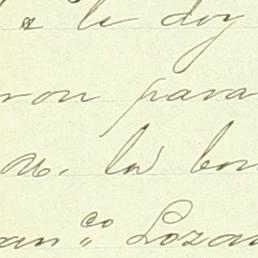 le doy
ron para
la bon
an.co Lozan